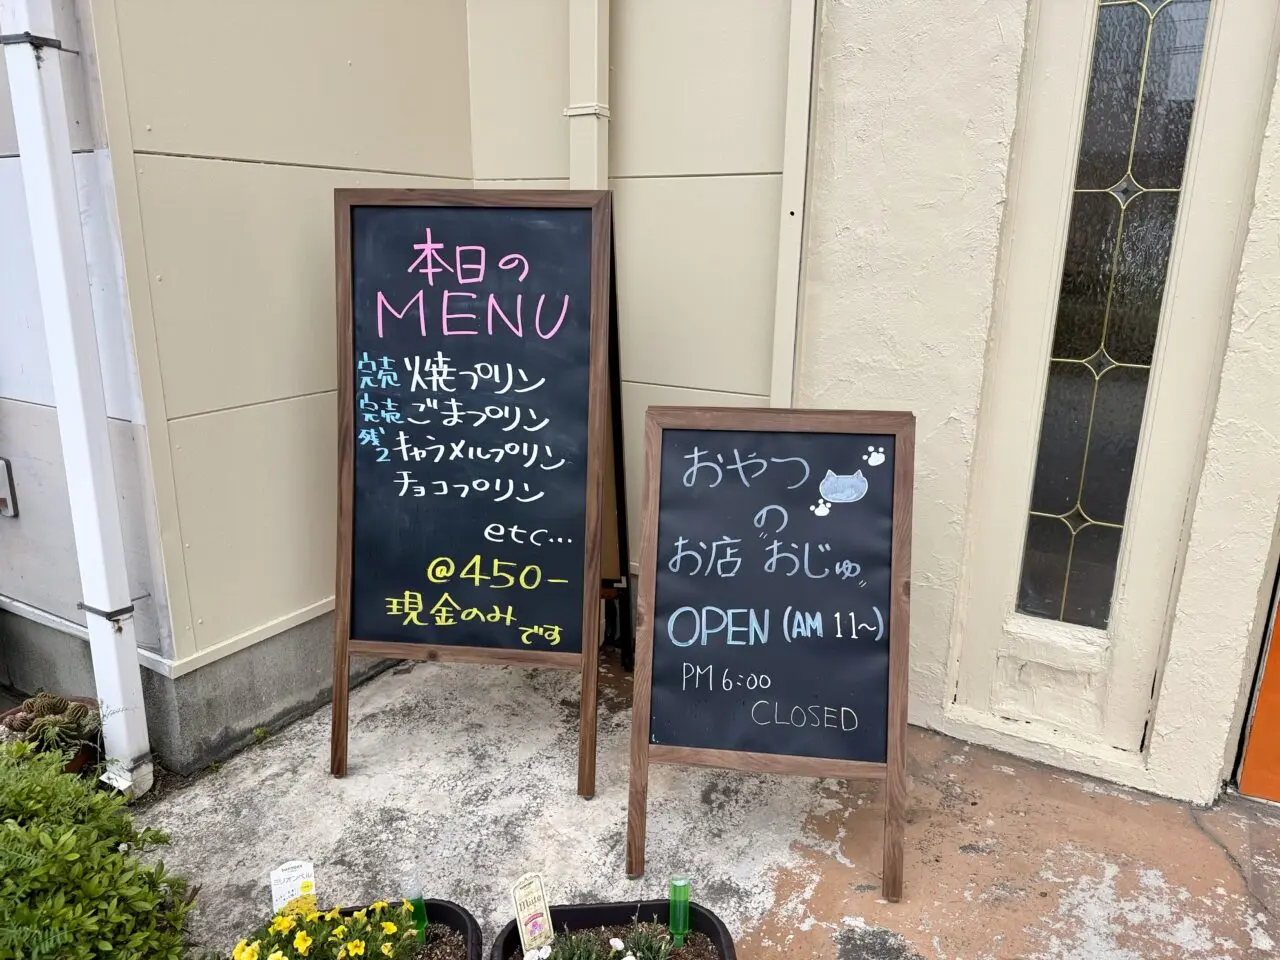 本日の
MENU
完売 焼プリン
完売 ごまプリン
残2 キャラメルプリン
チョコプリン
etc...
@450-
現金のみ
です
おやつ
の
お店 "おじゅ"
OPEN (AM 11~)
PM 6:00
CLOSED
ミリオンベル